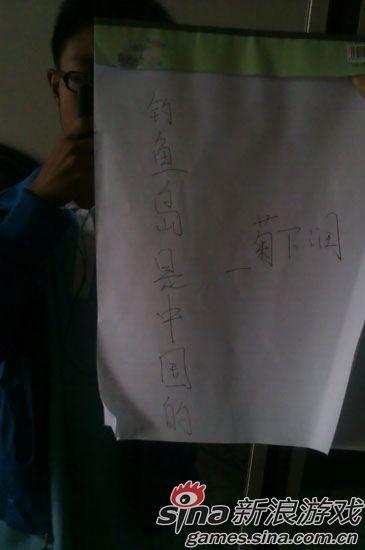 钓鱼岛是中国的
—菊下润
sina新浪游戏
games.sina.com.cn